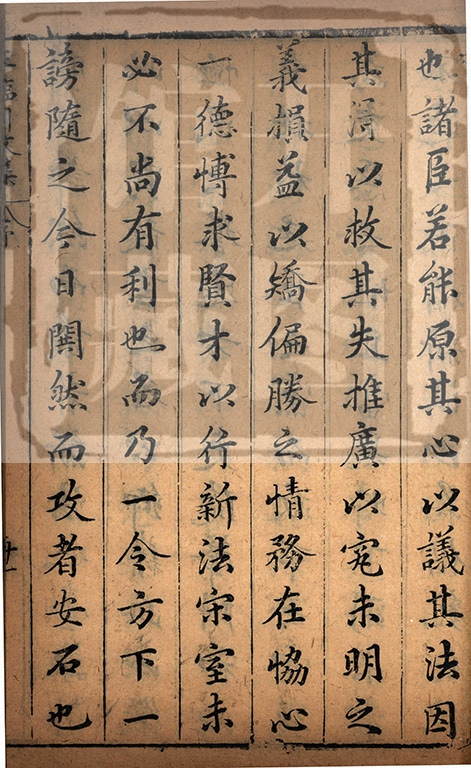 也諸臣若能原其心以議其法因
其淂以救其失推廣以寃未明之
義損益以矯偏勝之情務在恊心
一德愽求賢才以行新法宋室未
必不尚有利也而乃一令方下一
謗隨之今日鬨然而攻者安石也